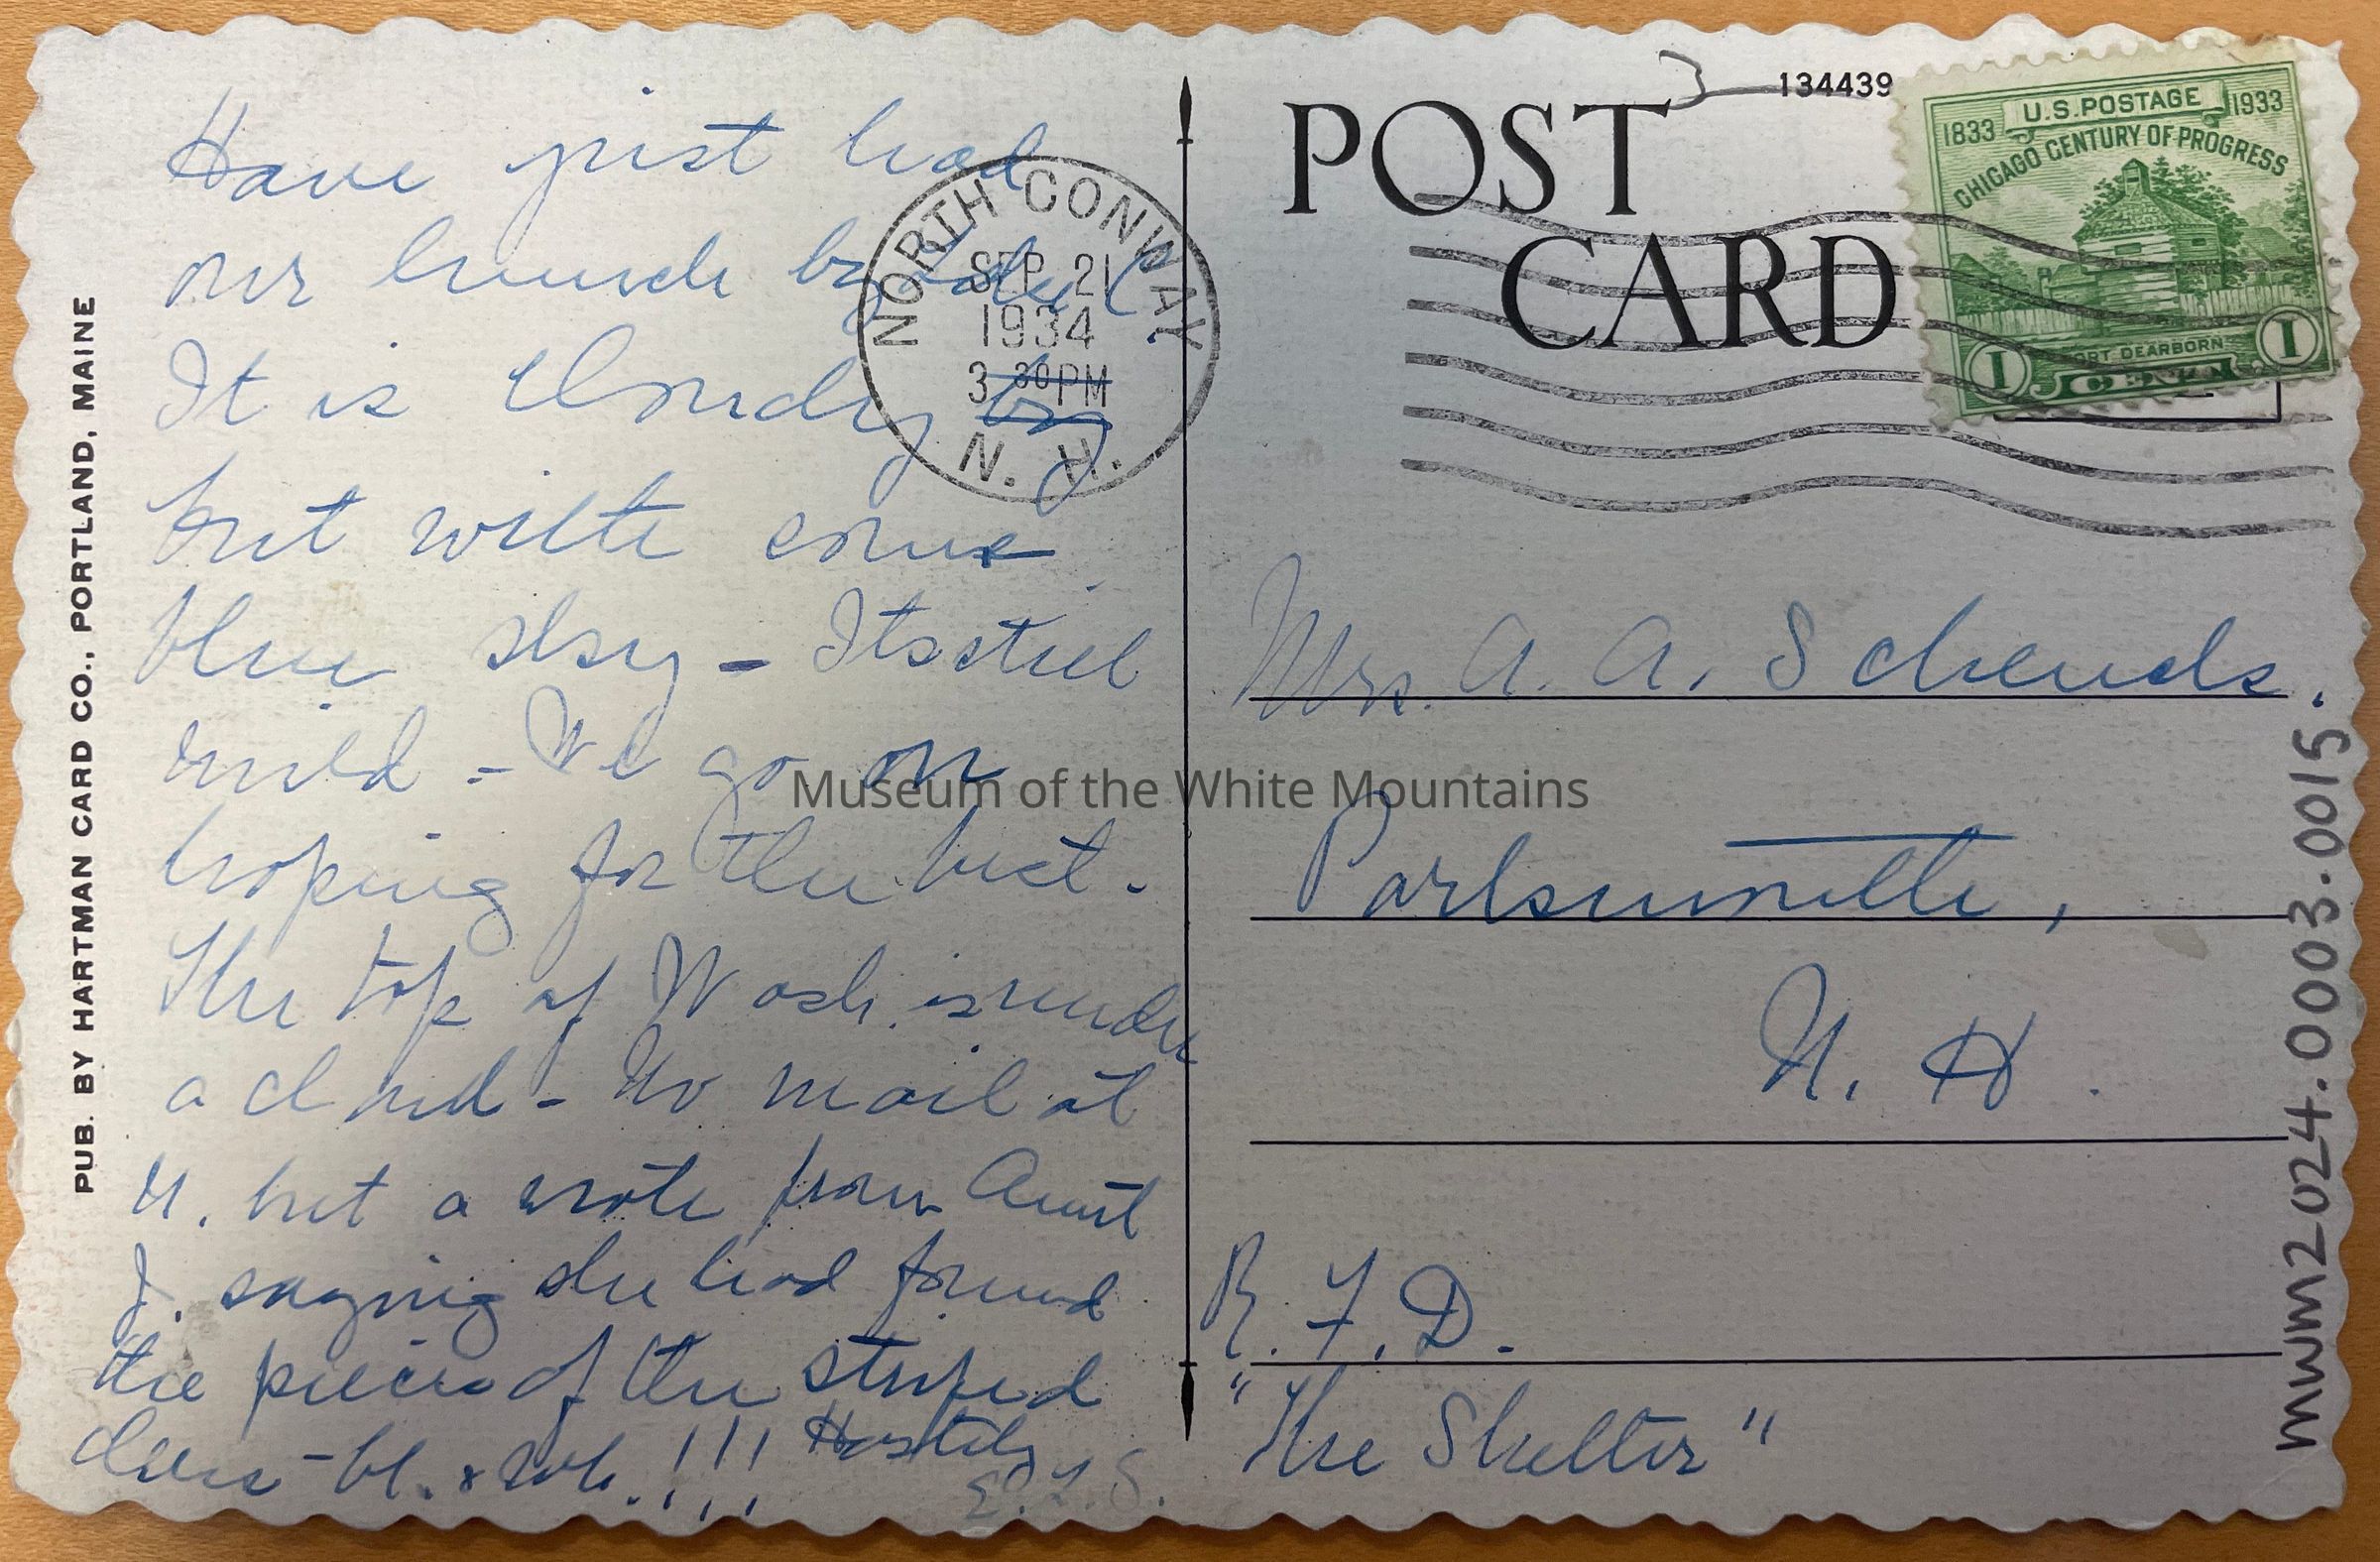 Have just had
our lunch by
It is cloudy by
but with some
blue sky - Its still
mild - We go on
hoping for the best.
The top of Wash. is under
a cloud - No mail at
N. but a note from Aunt
J. saying she had found
the piece of the striped
dress - bl. & wh. !!! Hastily
E. L. S.
PUB. BY HARTMAN CARD CO., PORTLAND, MAINE
NORTH CONWAY
SEP 21
1934
3 30 PM
N. H.
POST
CARD
3
134439
U.S. POSTAGE
1833 1933
CHICAGO CENTURY OF PROGRESS
FORT DEARBORN
1 CENT 1
Mrs. A. A. Schenck.
Portsmouth,
N. H.
R. F. D.
"The Shelter"
mwm2024.0003.0015
Museum of the White Mountains